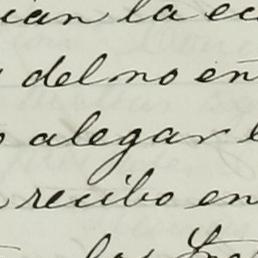 ian la ec
del no en
alegar e
recibo en
los